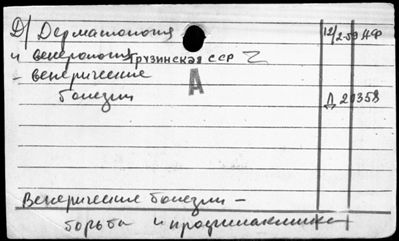 Д/ Дерматология 12/2-59 АФ
и венерология Грузинская ССР
- венерические А
болезни Д 20358
Венерические болезни -
борьба и профилактика